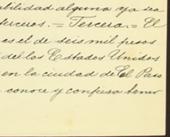 abilidad alguna ya sea
terceros. = Tercera. = El
es el de seis mil pesos
de los Estados Unidos
en la ciudad de El Paso
conoce y confiesa tener